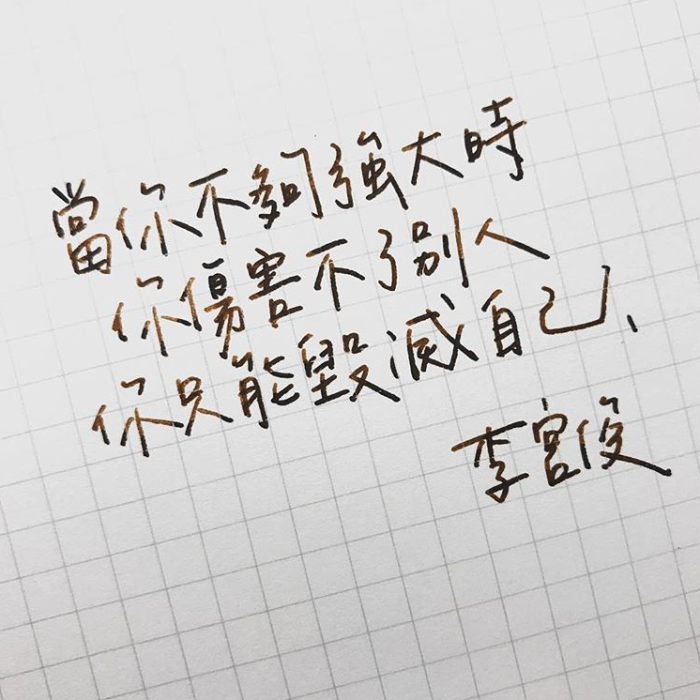 當你不夠強大時
你傷害不了別人
你只能毀滅自己、
李宮俊